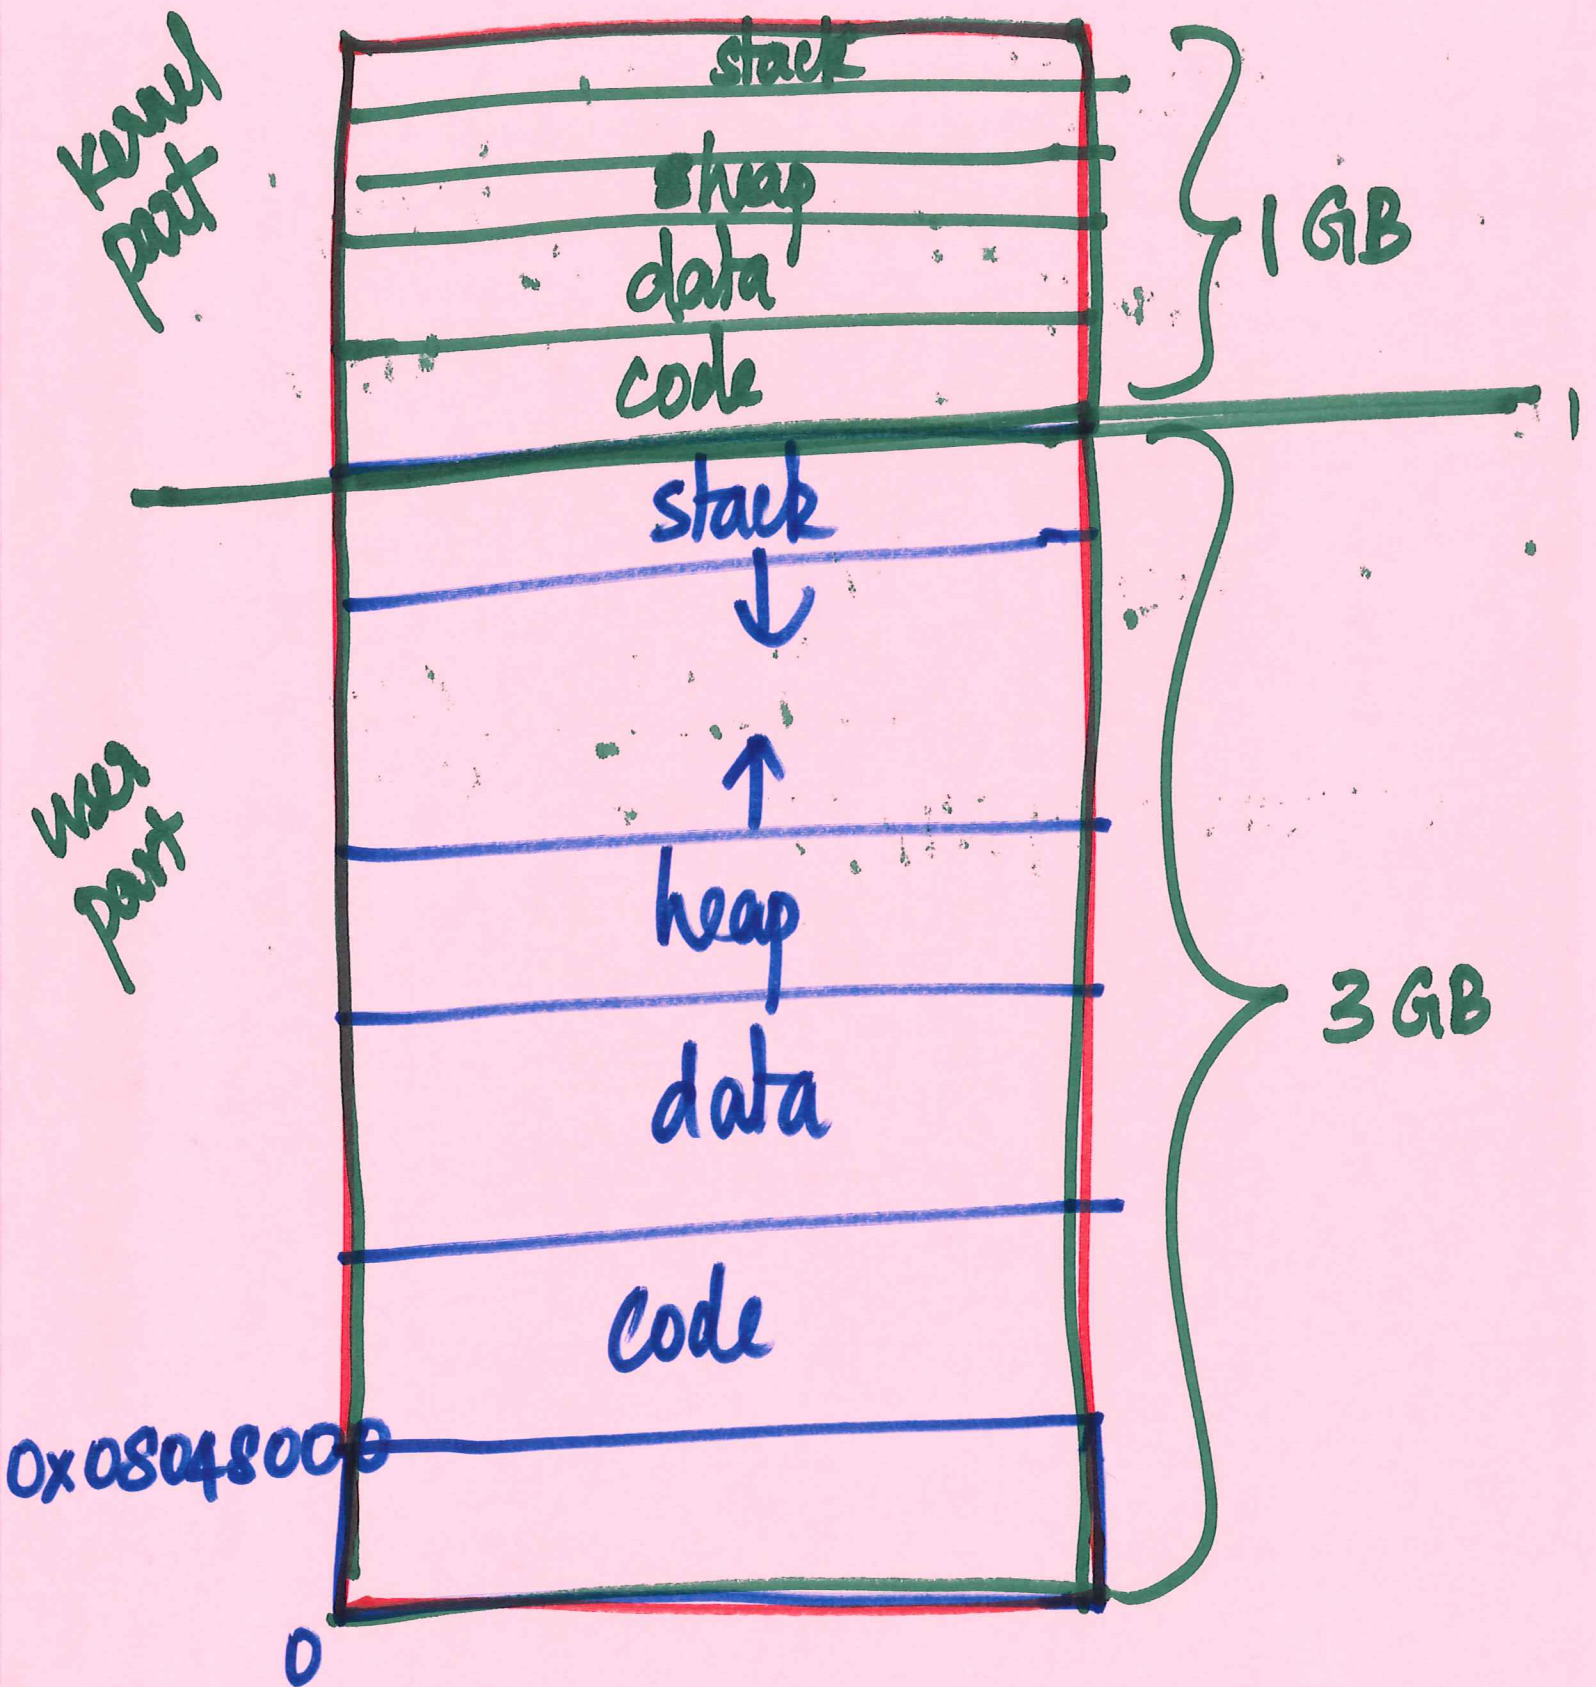 Kernel
part
stack
heap
data
code
1 GB
stack
user
part
heap
data
code
3 GB
0x08048000
0